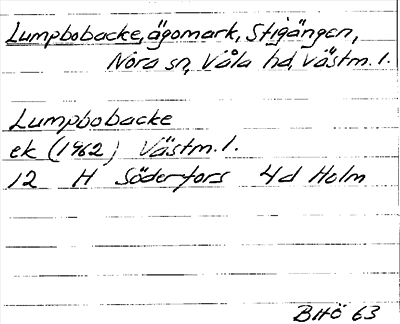 Lumpbobacke, ägomark, Stigängen,
Nora sn, Våla hd, Västm. l.
Lumpbobacke
ek (1962) Västm. l.
12 H Söderfors 4d Holm
BHÖ 63